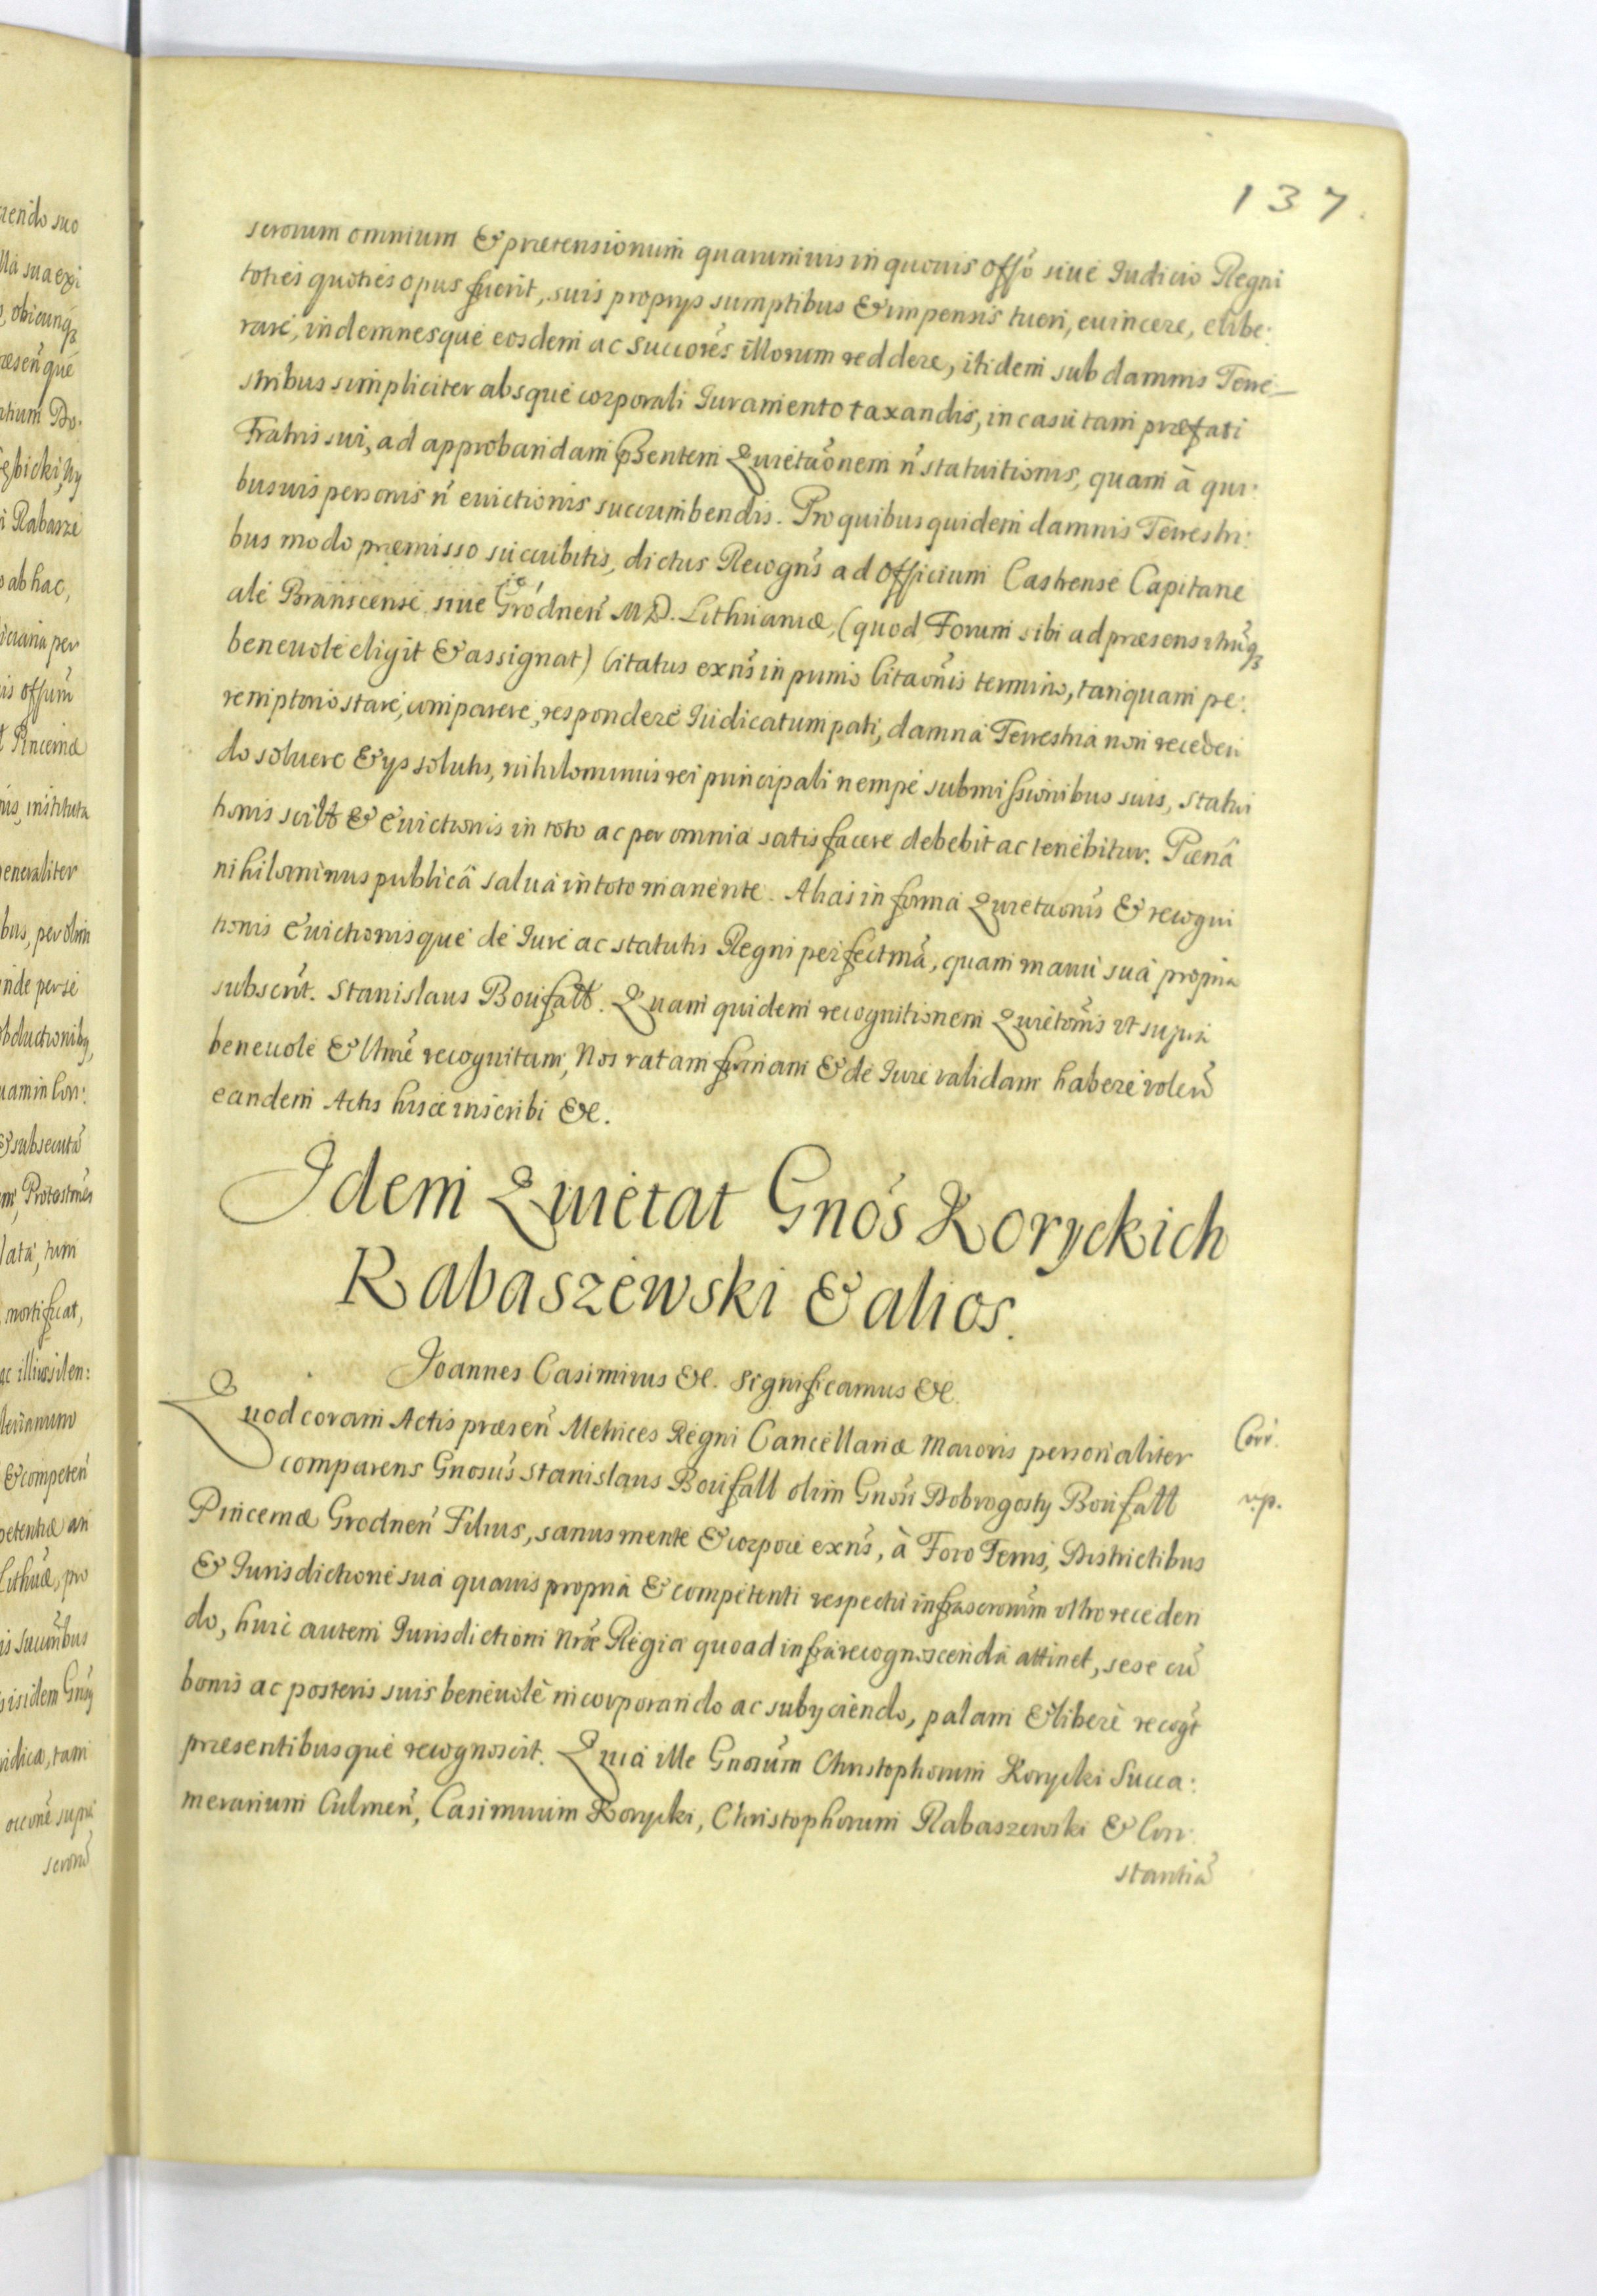 137.
serorum omnium & prætensionum quarumuis in quouis offő siue Iudicio Regni
toties quoties opus fuerit, suis proprys sumptibus & impensis tueri, euincere, elibe:
rare, indemnesque eosdem ac Succores illorum reddere, itidem sub damnis Terre-
stribus simpliciter absque corporali Iuramento taxandis, in casu tam præfati
Fratris sui, ad approbandam psentem Quietaõnem ñ statuitionis, quam à qui:
busuis personis ñ euictionis succumbendis. Pro quibus quidem damnis Terrestri:
bus modo præmisso succubitis, dictus Recogñs ad Officium Castrense Capitane
ale Branscense siue Grodneñ M D. Lithuaniæ, (quod Forum sibi ad præsens
beneuole eligit & assignat) Citatus exñs in primo Citaõnis termino, tanquam pe:
remptorio stare, comparere, respondere Iudicatum pati, damna Terrestria non receden
do soluere & ys solutis, nihilominus rei principali nempe submissionibus suis, statui
tionis scilt & Euictionis in toto ac per omnia satisfacere debebit ac tenebitur. Pœnâ
nihilominus publicâ saluâ in toto manente. Alias in forma Quietaonis & recogni
tionis Euictionisque de Iure ac statutis Regni perfectmã, quam manu suâ propria
subscrt. Stanislaus Boufałł. Quam quidem recognitionem Quietonis vt supra
beneuole & lbmẽ recognitam, Nos ratam firmam & de Iure validam habere voleñ
eandem Actis hisce inscribi &c.
Idem Quietat Gnos Koryckich
Rabaszewski & alios.
Joannes Casimirus &c. Significamus &c.
Quod coram Actis præseñ Metrices Regni Cancellariæ Maioris personaliter
Corr.
comparens Gnosus Stanislaus Boufałł olim Gnosi Dobrogosty Boufałł
rp.
Pincernæ Grodneñ Filius, sanus mente & corpore exñs, à Foro Terris, Districtibus
& Iurisdictione sua quauis propria & competenti respectu infrascrorum vltro receden
do, huic autem Iurisdictioni Nræ Regiæ quoad infra recognoscenda attinet, sese cũ
bonis ac posteris suis beneuole incorporando ac subyciendo, palam & libere recogt
præsentibusque recognoscit. Quia ille Gnosum Christophorum Korycki Succa:
merarium Culmeñ, Casimirum Korycki, Christophorum Rabaszewski & Con
stantiã